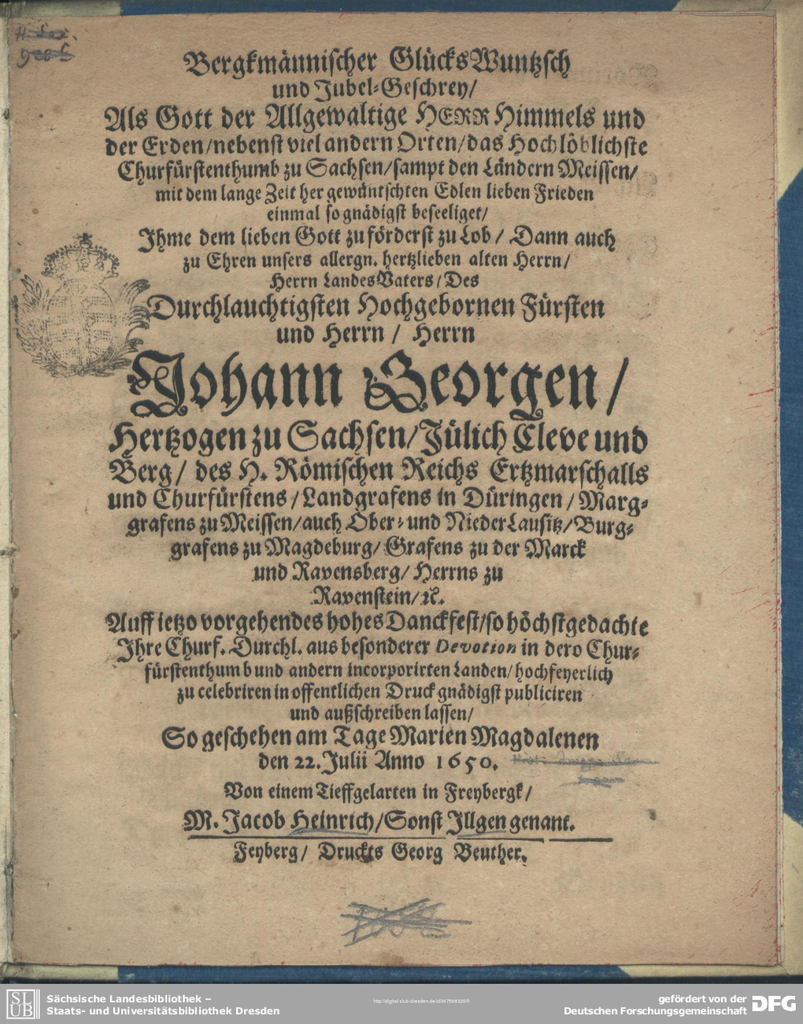 Bergkmännischer GlücksWuntzsch
und Jubel-Geschrey/
Als Gott der Allgewaltige HERR Himmels und
der Erden/nebenst viel andern Orten/das Hochlöblichste
Churfürstenthumb zu Sachsen/sampt den Ländern Meissen/
mit dem lange Zeit her gewüntschten Edlen lieben Frieden
einmal so gnädigst beseeliget/
Ihme dem lieben Gott zu förderst zu Lob/ Dann auch
zu Ehren unsers allergn. hertzlieben alten Herrn/
Herrn LandesVaters/Des
Durchlauchtigsten Hochgebornen Fürsten
und Herrn/ Herrn
Johann Georgen/
Hertzogen zu Sachsen/Jülich Cleve und
Berg/ des H. Römischen Reichs Ertzmarschalls
und Churfürstens/Landgrafens in Düringen/Marg-
grafens zu Meissen/auch Ober- und NiederLausitz/Burg-
grafens zu Magdeburg/Grafens zu der Marck
und Ravensberg/Herrns zu
Ravenstein/ꝛc.
Auff ietzo vorgehendes hohes Danckfest/so höchstgedachte
Ihre Churf. Durchl. aus besonderer Devotion in dero Chur-
fürstenthumb und andern incorporirten Landen/hochfeyerlich
zu celebriren in offentlichen Druck gnädigst publiciren
und außschreiben lassen/
So geschehen am Tage Marien Magdalenen
den 22. Julii Anno 1650.
Von einem Tieffgelarten in Freybergk/
M. Jacob Heinrich/Sonst Illgen genant.
Feyberg/ Druckts Georg Beuther.
SLUB
Sächsische Landesbibliothek –
Staats- und Universitätsbibliothek Dresden
gefördert von der
Deutschen Forschungsgemeinschaft
DFG